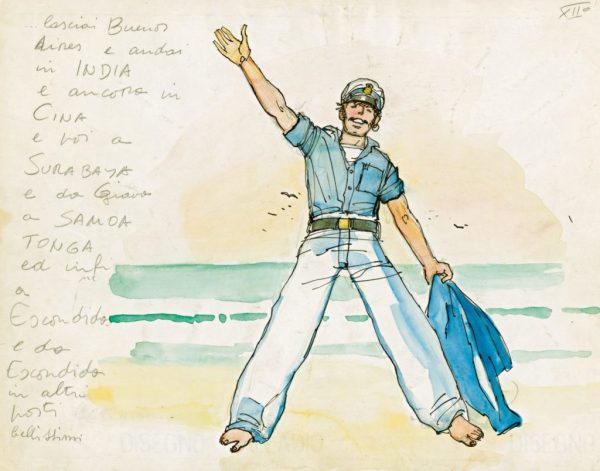 ...lasciai Buenos
Aires e andai
in INDIA
e ancora in
CINA
e poi a
SURABAYA
e da Giava
a SAMOA
TONGA
ed infi
ne
a
Escondida
e da
Escondida
in altri
posti
bellissimi
XII°
DISEGNO
DISEGNO